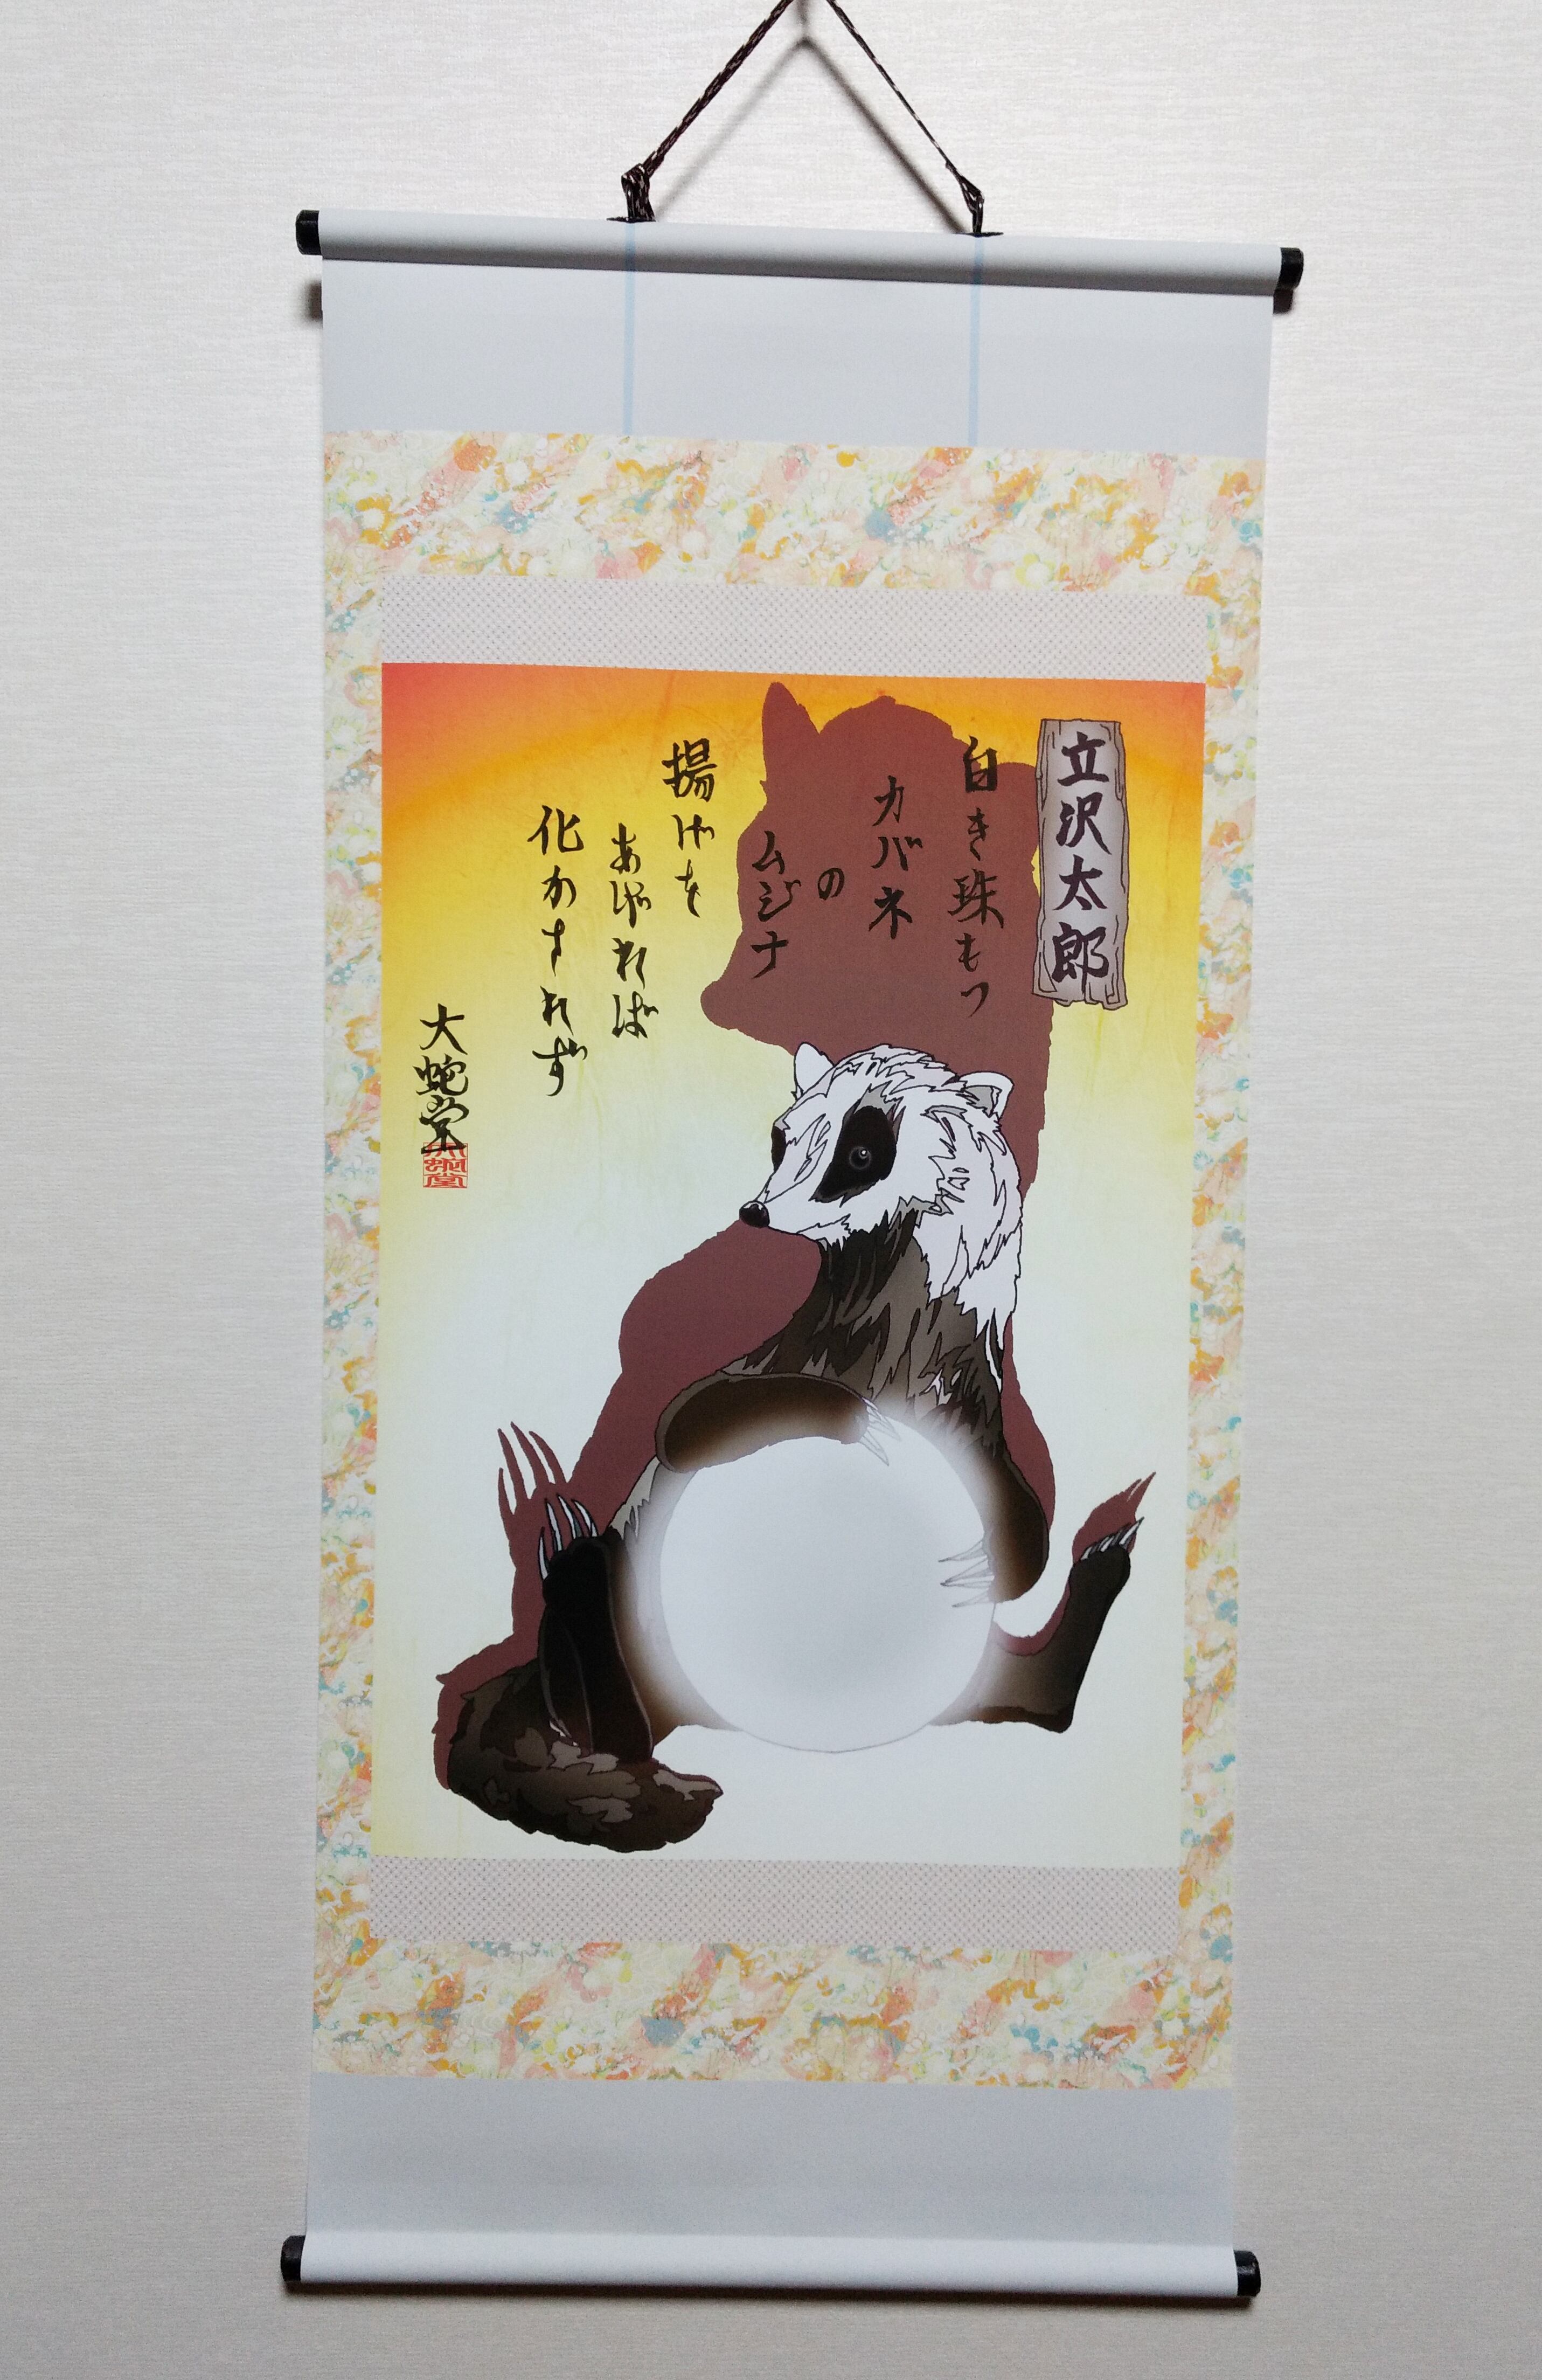 立沢太郎
白き珠もつ
カバネ
の
ムジナ
揚げを
あげれば
化かすれず
大蛇堂
大蛇堂